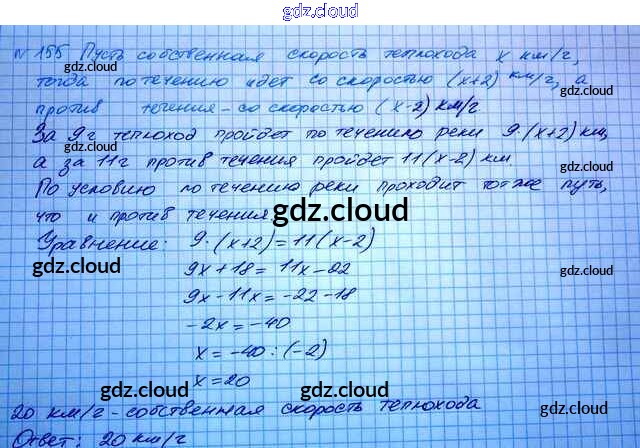 gdz.cloud
№ 155 Пусть собственная скорость теплохода x км/г,
тогда по течению идет со скоростью (x+2) км/г, а
против течения - со скоростью (x-2) км/г
За 9г теплоход пройдет по течению реки 9·(x+2) км,
а за 11г против течения пройдет 11(x-2) км
По условию по течению реки проходит тот же путь,
что и против течения.
Уравнение: 9·(x+2)=11(x-2)
9x+18= 11x-22
9x-11x=-22-18
-2x=-40
x=-40:(-2)
x=20
20 км/г - собственная скорость теплохода
Ответ: 20 км/г
gdz.cloud
gdz.cloud
gdz.cloud
gdz.cloud
gdz.cloud
gdz.cloud
gdz.cloud
gdz.cloud
gdz.cloud
gdz.cloud
gdz.cloud